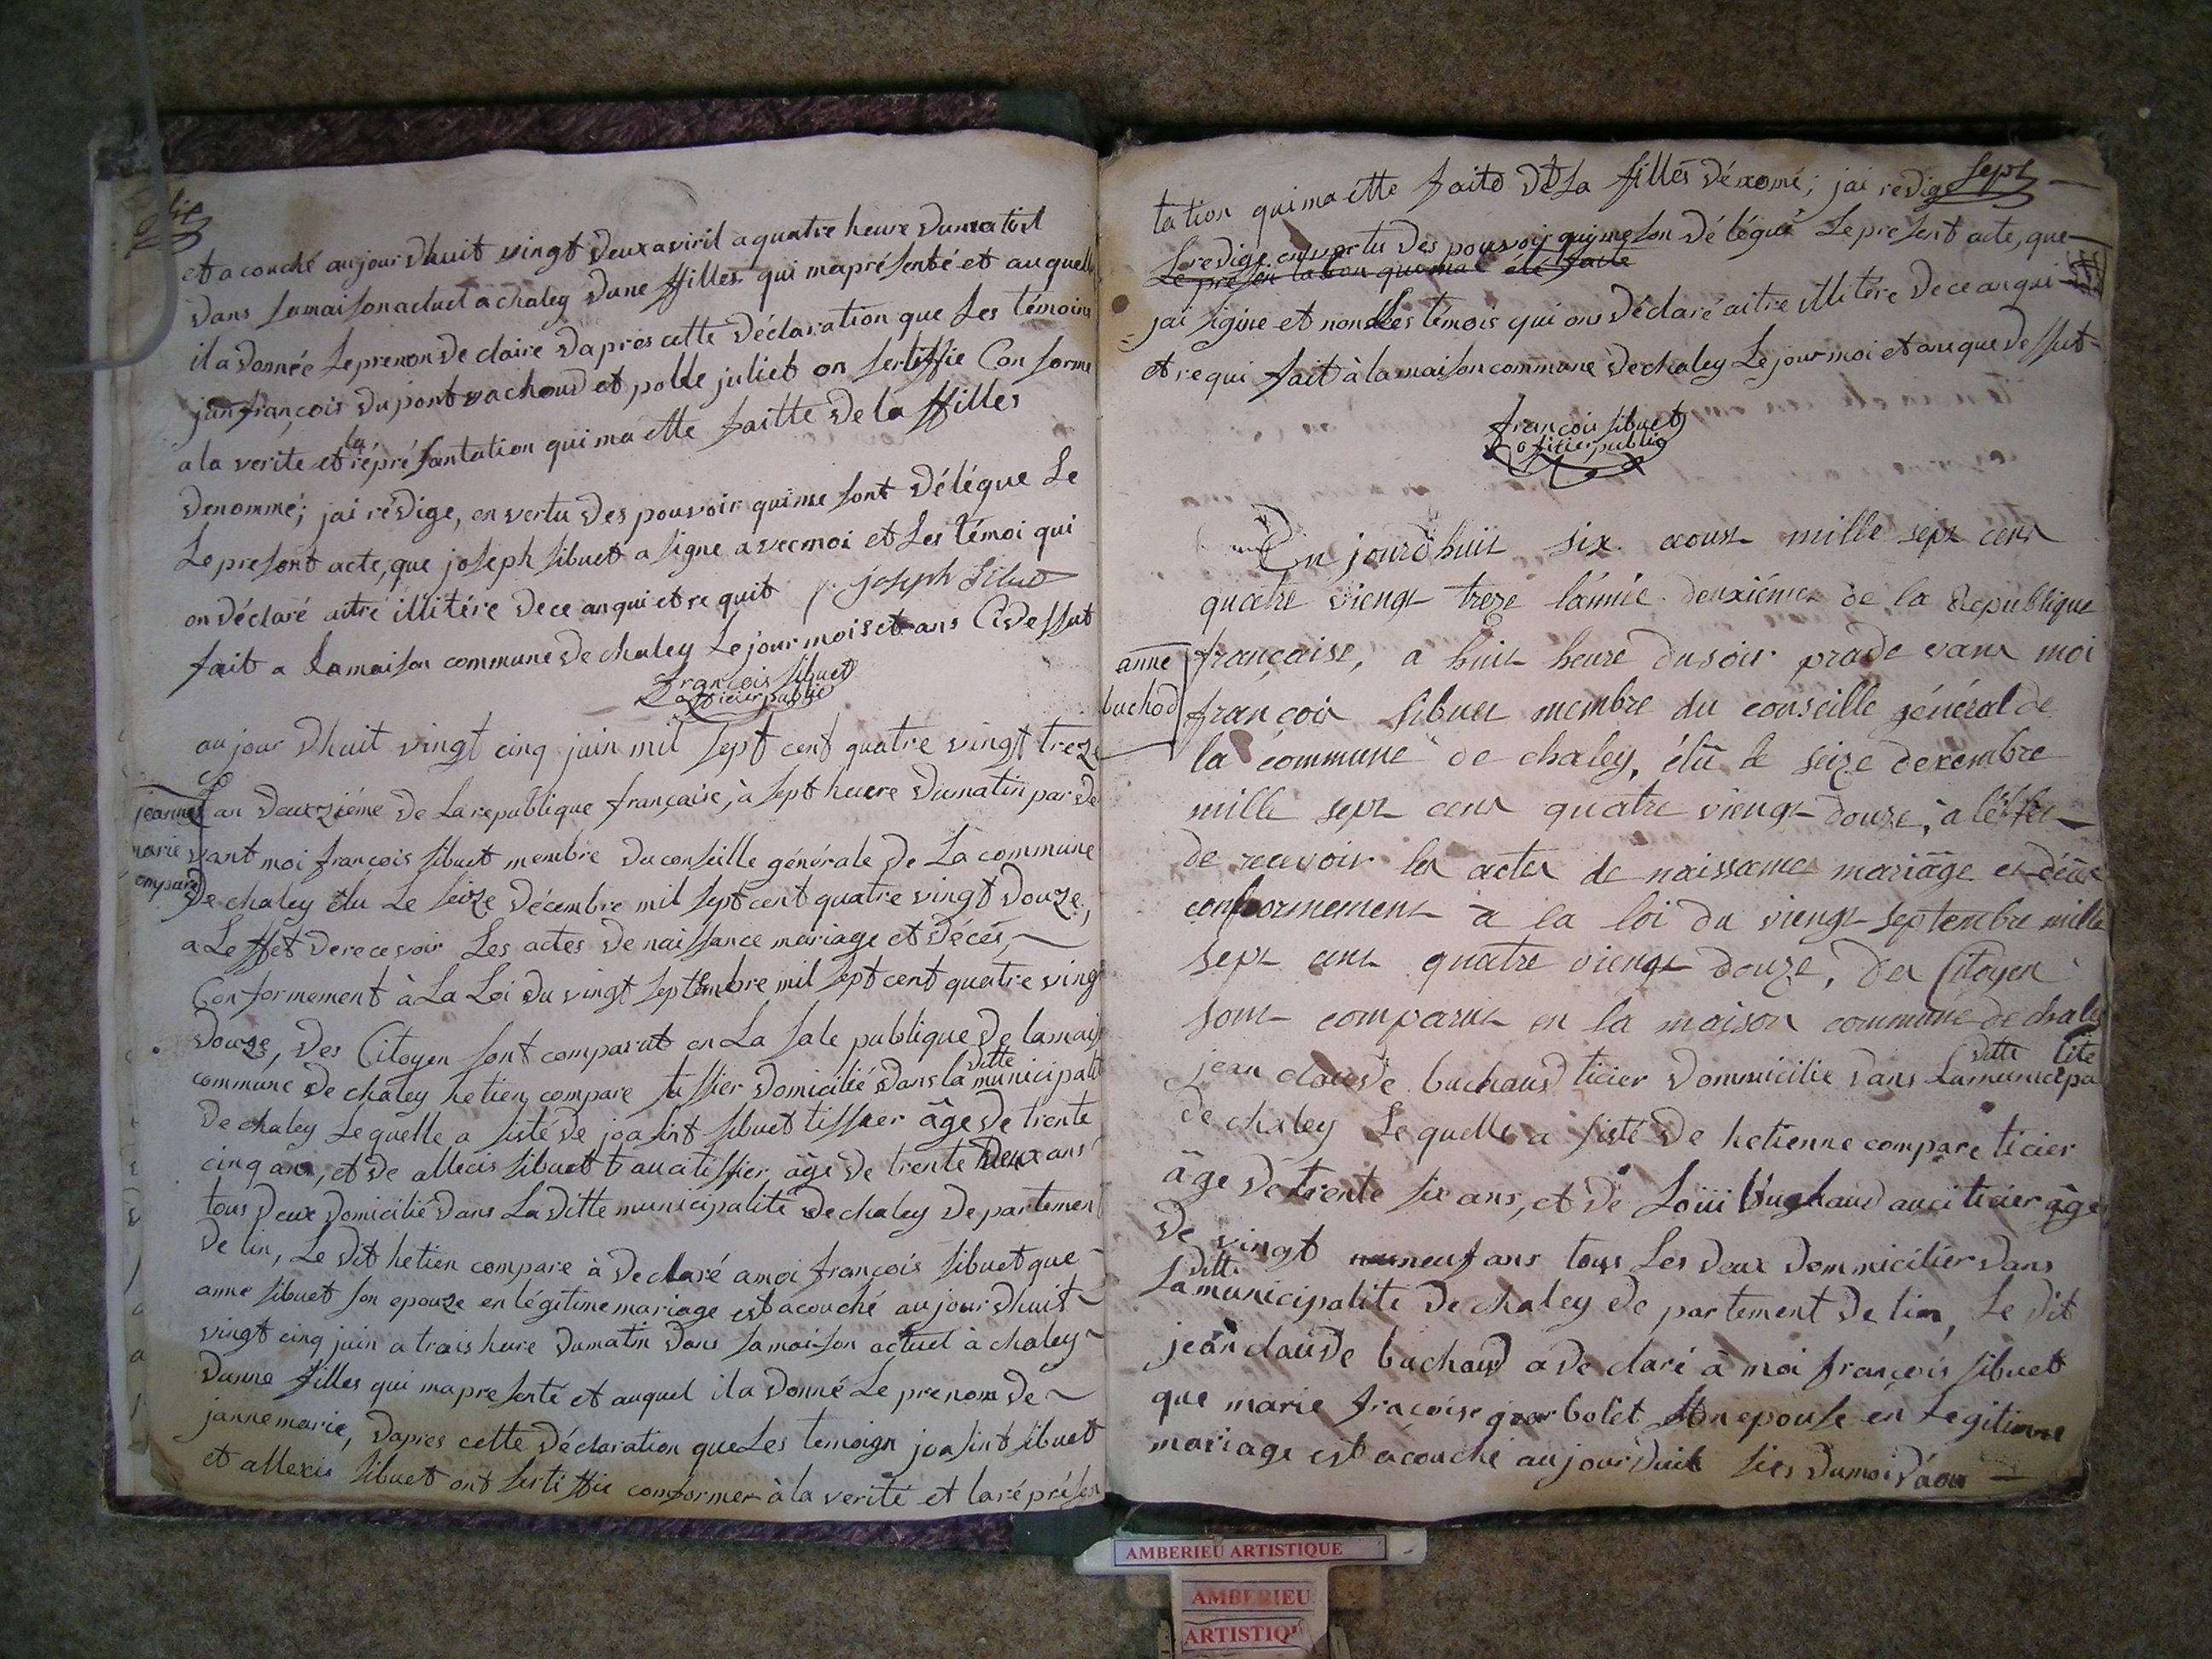 six
et acouché aujourdhuit vingt deux aviril a quatre heure dumatin
dans samaison actuel a chaley dune ffilles qui ma présenté et auquelle
il a donnée le prenon de claire daprès cette déclaration que les témoins
jan françois dupont vachoud et polle juliet on sertiffie Conforme
a la verite et la répresantation qui ma ette faitte de la ffilles
denommé; jai rédige, en vertu des pouvoir qui me sont délégue Le
Le present acte, que joseph sibuet a signe avec moi et les témoi qui
on déclaré aitre illitére de ce anqui et re quit joseph sibuet
fait a la maison commune de chaley Le jour mois et ans Cidessut
françois sibuet
officier public
aujour dhuit vingt cinq juin mil sept cent quatre vingt treze
jeanne
marie
compare
L an deuxziéme de la republique française, à sept heure dumatin par de
vant moi françois sibuet membre du conseille générale de La commune
de chaley élu Le seize décembre mil sept cent quatre vingt douze,
a Leffet de recevoir Les actes de naissance mariage et décés,
Conformement à La Loi du vingt septembre mil sept cent quatre ving
douze, des Citoyen sont comparut en La sale publique de lamais
commune de chaley hetien compare tissier domicilié dans la ditte municipalit
de chaley Lequelle a sisté de joasint sibuet tissier âge de trente
cinq ans, et de allecis sibuet auci tissier âge de trente deux ans
tous deux domicilié dans La ditte municipalité de chaley departement
de lin, Le dit hetien compare à declaré a moi françois sibuet que
anne sibuet son epouze en légitime mariage est acouché au jour dhuit
vingt cinq juin a trais heure dumatin dans samaison actuel à chaley
dunne filles qui ma presenté et auquel il a donné Le prenom de
janne marie, dapres cette déclaration que Les temoign joasint sibuet
et allexis sibuet ont sertiffie conformer à la verité et la réprésen
sept
tation qui ma ette faite de la filles dénomé; jai redige
Le redige en vertu des pouvoir qui me son délégué Le present acte, que
Le présentation qui ma été faite
jai signe et non Les témois qui ons déclaré aitre illitére de ce anqui
et requi fait à la maison commune de chaley Le jour moi et an que dessut
françois sibuet
officier public
En jourdhuit six aoust mille sept cent
quatre viengt treze lánnée deuxiéme de la Republique
anne
buchod
française, a huit heure dusoir par de vant moi
françois sibuet membre du conseille général de
la commune de chaley, élu le seize decembre
mille sept cent quatre viengt douze, à léffet
de recevoir les actes de naissance mariage et décé
conformement à la loi du viengt septembre mille
sept cent quatre viengt douze, des Citoyen
sont comparut en la maison commune de chaley
jean claude buchaud ticier dommicilie dans La ditte municipalité
de chaley Lequelle a sisté de hetienne compare ticier
âge de trente six ans, et de Loüi bughaud auci ticier âge
de vingt neuf ans tous Les deux dommicilier dans
La ditte municipalite de chaley departement de lin, Le dit
jean claude buchaud a declaré à moi françois sibuet
que marie fracoise garbolet son epouse en Legitimme
mariage est acouché aujourduit sies dumoi dàou
AMBERIEU ARTISTIQUE
AMBERIEU
ARTISTIQ